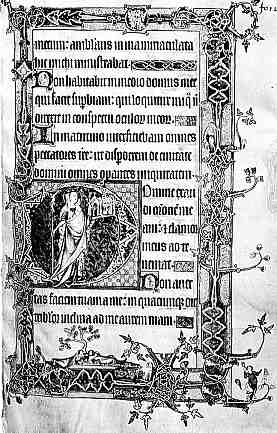 meum: ambulans in uia inmaculata
hic michi ministrabat.
Non habitabit in medio domus mee
qui facit supbiam: qui loquitur
direxit in conspectu oculoꝝ meoꝝ.
In matutino interficiebam omnes
peccatores tre: ut disperdem de ciuitate
domini omnes opantes iniquitatem
Domine exau
di oronem me
am: et clamor
meus ad te
ueniat.
Non auer
tas faciem tuam a me: in quacumque die
tribulor inclina ad me aurem tuam